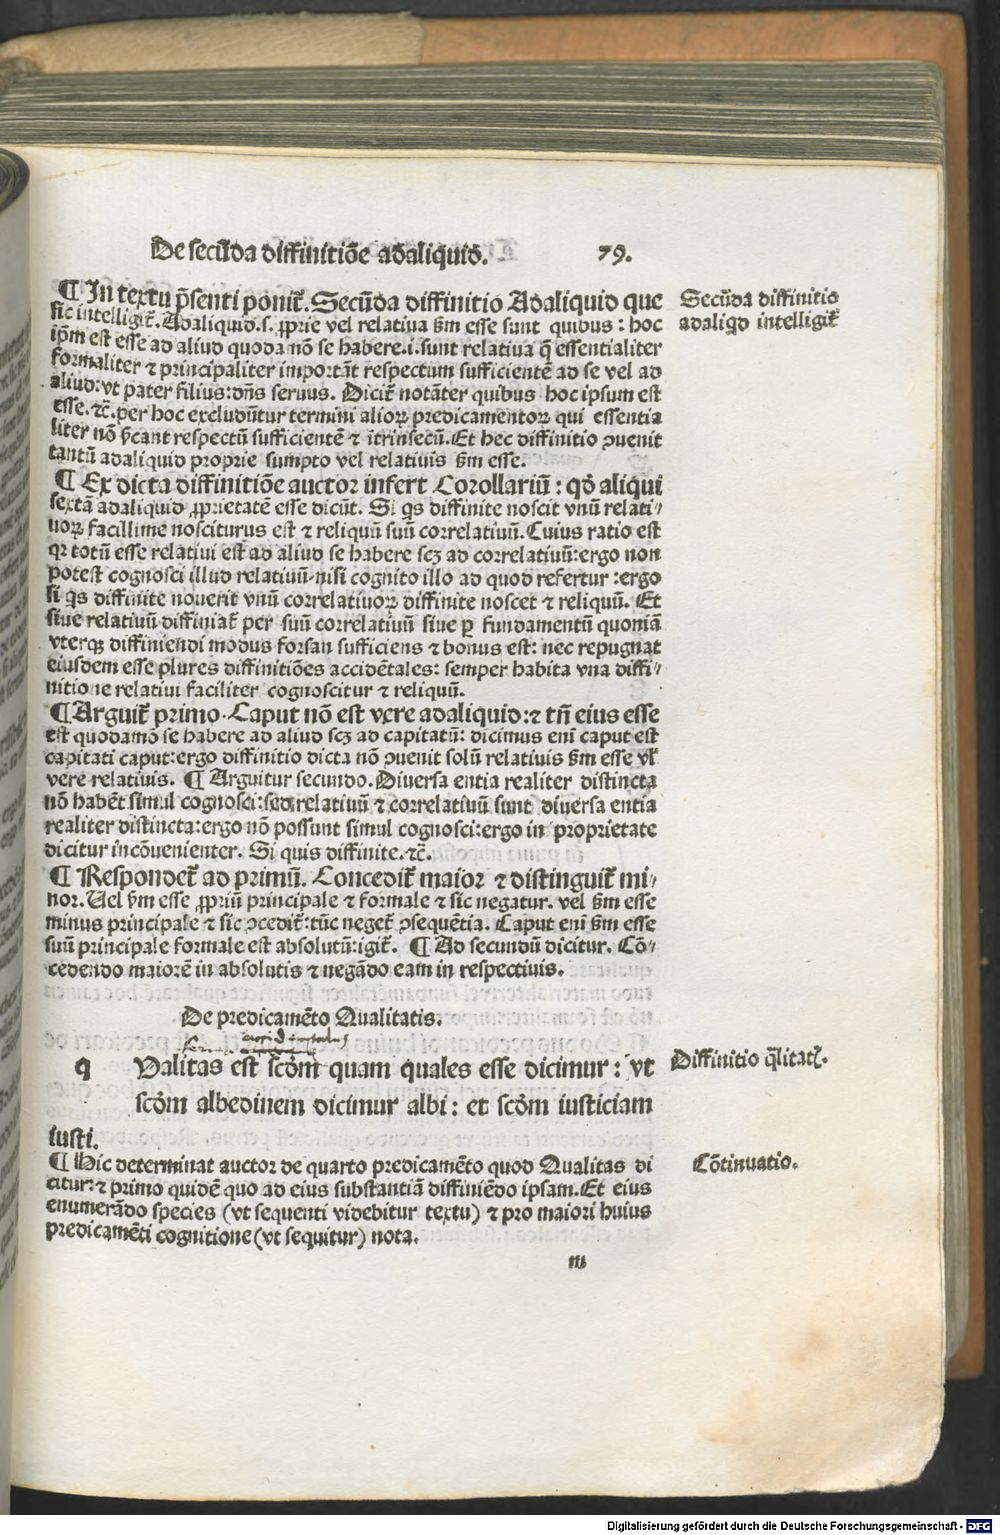 De secūda diffinitiōe adaliquid. 79.
¶ In textu p̄senti ponit᷑. Secūda diffinitio Adaliquid que
sic intelligit᷑. Adaliquid .s. ꝓprie vel relatiua ẜm esse sunt quibus : hoc
ip̄m est esse ad aliud quodā nō se habere .i. sunt relatiua q̄ essentialiter
formaliter ⁊ principaliter importāt respectum sufficientē ad se vel ad
aliud: vt pater filius: dn̄s seruus. Dicit᷑ notāter quibus hoc ipsum est
esse. ⁊c̄. per hoc excludūtur termini alioꝝ predicamentoꝝ qui essentia
liter nō ẜcant respectū sufficientē ⁊ itrinsecū. Et hec diffinitio ꝯuenit
tantū adaliquid proprie sumpto vel relatiuis ẜm esse.
¶ Ex dicta diffinitiōe auctor infert Corollariū : qd̄ aliqui
sextā adaliquid ꝓprietatē esse dicūt. Si q̇s diffinite noscit vnū relati⸗
uoꝝ facillime nosciturus est ⁊ reliquū suū correlatiuū. Cuius ratio est
qꝛ totū esse relatiui est ad aliud se habere scꝫ ad correlatiuū: ergo non
potest cognosci illud relatiuū nisi cognito illo ad quod refertur : ergo
si q̇s diffinite nouerit vnū correlatiuoꝝ diffinite noscet ⁊ reliquū. Et
siue relatiuū diffiniat᷑ per suū correlatiuū siue ꝑ fundamentū quoniā
vterqꝫ diffiniendi modus forsan sufficiens ⁊ bonus est: nec repugnat
eiusdem esse plures diffinitiōes accidētales: semper habita vna diffi⸗
nitione relatiui faciliter cognoscitur ⁊ reliquū.
¶ Arguit᷑ primo. Caput nō est vere adaliquid: ⁊ tn̄ eius esse
est quodāmō se habere ad aliud scꝫ ad capitatū: dicimus eni caput est
capitati caput: ergo diffinitio dicta nō ꝯuenit solū relatiuis ẜm esse vl᷑
vere relatiuis. ¶ Arguitur secundo. Diuersa entia realiter distincta
nō habēt simul cognosci: sed relatiuū ⁊ correlatiuū sunt diuersa entia
realiter distincta: ergo nō possunt simul cognosci: ergo in proprietate
dicitur incōuenienter. Si quis diffinite. ⁊c̄.
¶ Respondet᷑ ad primū. Concedit᷑ maior ⁊ distinguit᷑ mi⸗
nor. Uel ẜm esse ꝓpriū principale ⁊ formale ⁊ sic negatur. vel ẜm esse
minus principale ⁊ sic ꝯcedit᷑: tūc neget᷑ ꝯsequētia. Caput eni ẜm esse
suū principale formale est absolutū: igit᷑. ¶ Ad secundū dicitur. Cō⸗
cedendo maiorē in absolutis ⁊ negādo eam in respectiuis.
De predicamēto Qualitatis.
q Ualitas est scd̄m quam quales esse dicimur : vt
scd̄m albedinem dicimur albi : et scd̄m iusticiam
iusti.
¶ Hic determinat auctor de quarto predicamēto quod Qualitas di
citur: ⁊ primo quidē quo ad eius substantiā diffiniēdo ipsam. Et eius
enumerādo species (vt sequenti videbitur textu) ⁊ pro maiori huius
predicamēti cognitione (vt sequitur) nota.
m
Secūda diffinitio
adaliq̇d intelligit᷑
Diffinitio q̄litat᷑.
Cōtinuatio.
Digitalisierung gefördert durch die Deutsche Forschungsgemeinschaft - DFG